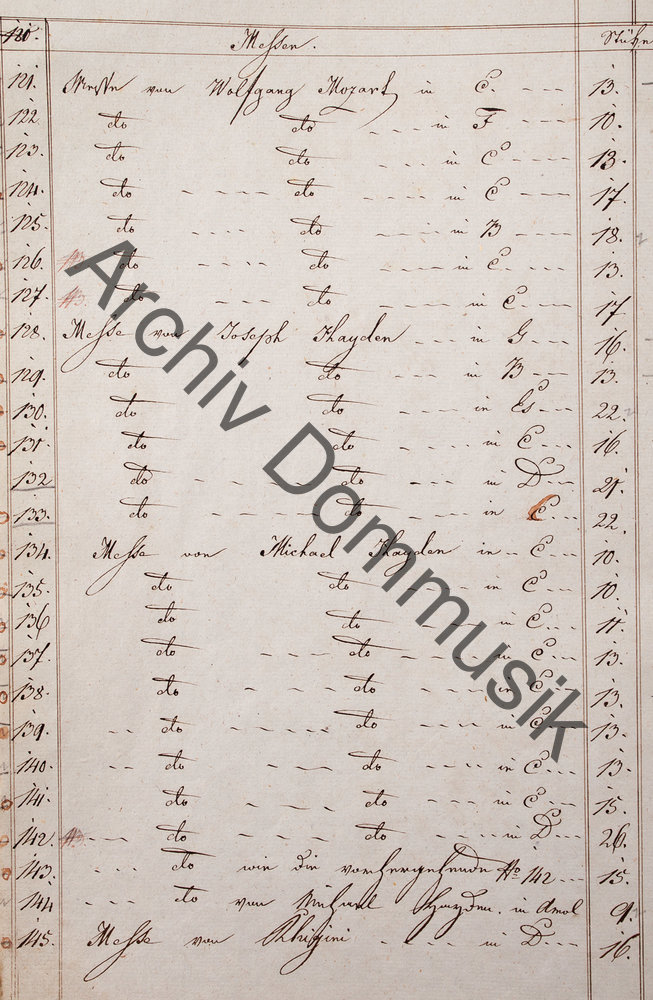 120. Messen. Stücke
121. Messe von Wolfgang Mozart in C. --- 13.
122 do do --- in F --- 10.
123. do do --- in C --- 13.
124. do ---- do ---- in C --- 17.
125. do ---- do ---- in B --- 18.
126. No. do ---- do ---- in C --- 13.
127. No. do --- do ---- in C --- 17.
128. Messe von Joseph Hayden --- in G --- 16.
129. do do --- in B --- 13.
130. do do ---- in Es --- 22.
131. do do --- in C --- 16.
132 do ---- do --- in D --- 21.
133. do ---- do --- in C --- 22.
134. Messe von Michael Hayden in -- C --- 10.
135. do do --- in C --- 10.
136 do do ---- in C --- 11.
137. do --- do ---- in C --- 13.
138. do ---- do --- in C --- 13.
139. -- do ----- do ---- in C --- 13.
140. -- do ---- do ---- in C --- 13.
141. do ---- do --- in C --- 15.
142. No. --- do --- do ---- in D --- 26.
143. --- do wie die vorhergehende No 142 --- 15.
144 --- do von Michael Hayden. in dmol 9.
145. Messe von ---- in D --- 16.
Archiv Dommusik